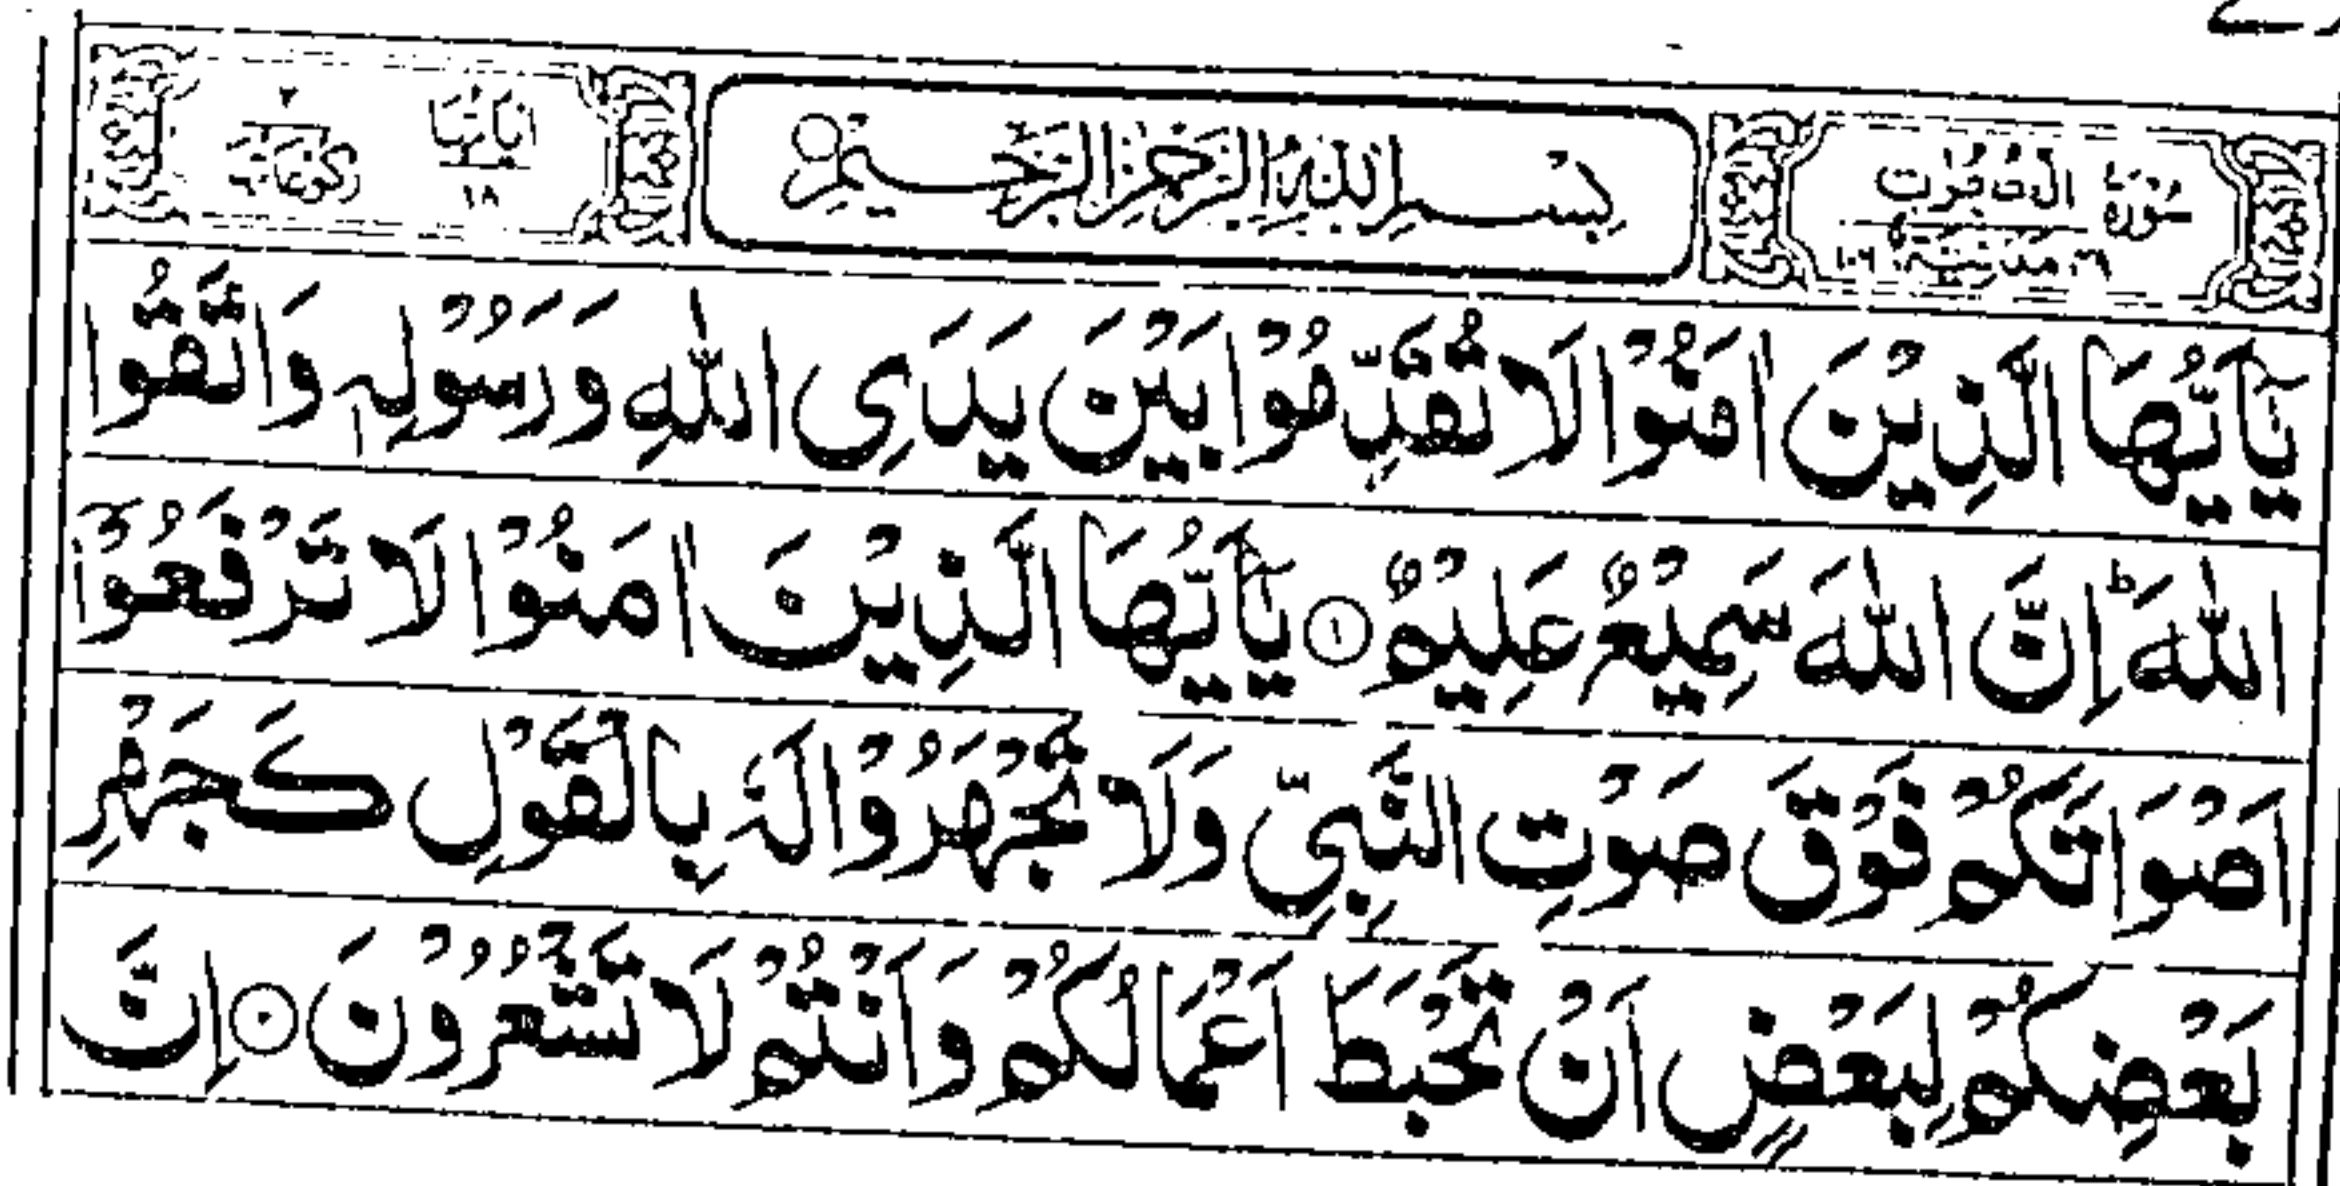 سُوْرَةُ الْحُجُرٰتِ مَدَنِيَّةٌ
بِسْمِ اللّٰهِ الرَّحْمٰنِ الرَّحِيْمِ
اٰيَاتُهَا ١٨ رُكُوْعَاتُهَا ٢
يٰۤاَيُّهَا الَّذِيْنَ اٰمَنُوْا لَا تُقَدِّمُوْا بَيْنَ يَدَيِ اللّٰهِ وَرَسُوْلِهٖ وَاتَّقُوا
اللّٰهَ ؕ اِنَّ اللّٰهَ سَمِيْعٌ عَلِيْمٌ ۝١ يٰۤاَيُّهَا الَّذِيْنَ اٰمَنُوْا لَا تَرْفَعُوْۤا
اَصْوَاتَكُمْ فَوْقَ صَوْتِ النَّبِيِّ وَلَا تَجْهَرُوْا لَهٗ بِالْقَوْلِ كَجَهْرِ
بَعْضِكُمْ لِبَعْضٍ اَنْ تَحْبَطَ اَعْمَالُكُمْ وَاَنْتُمْ لَا تَشْعُرُوْنَ ۝٢ اِنَّ